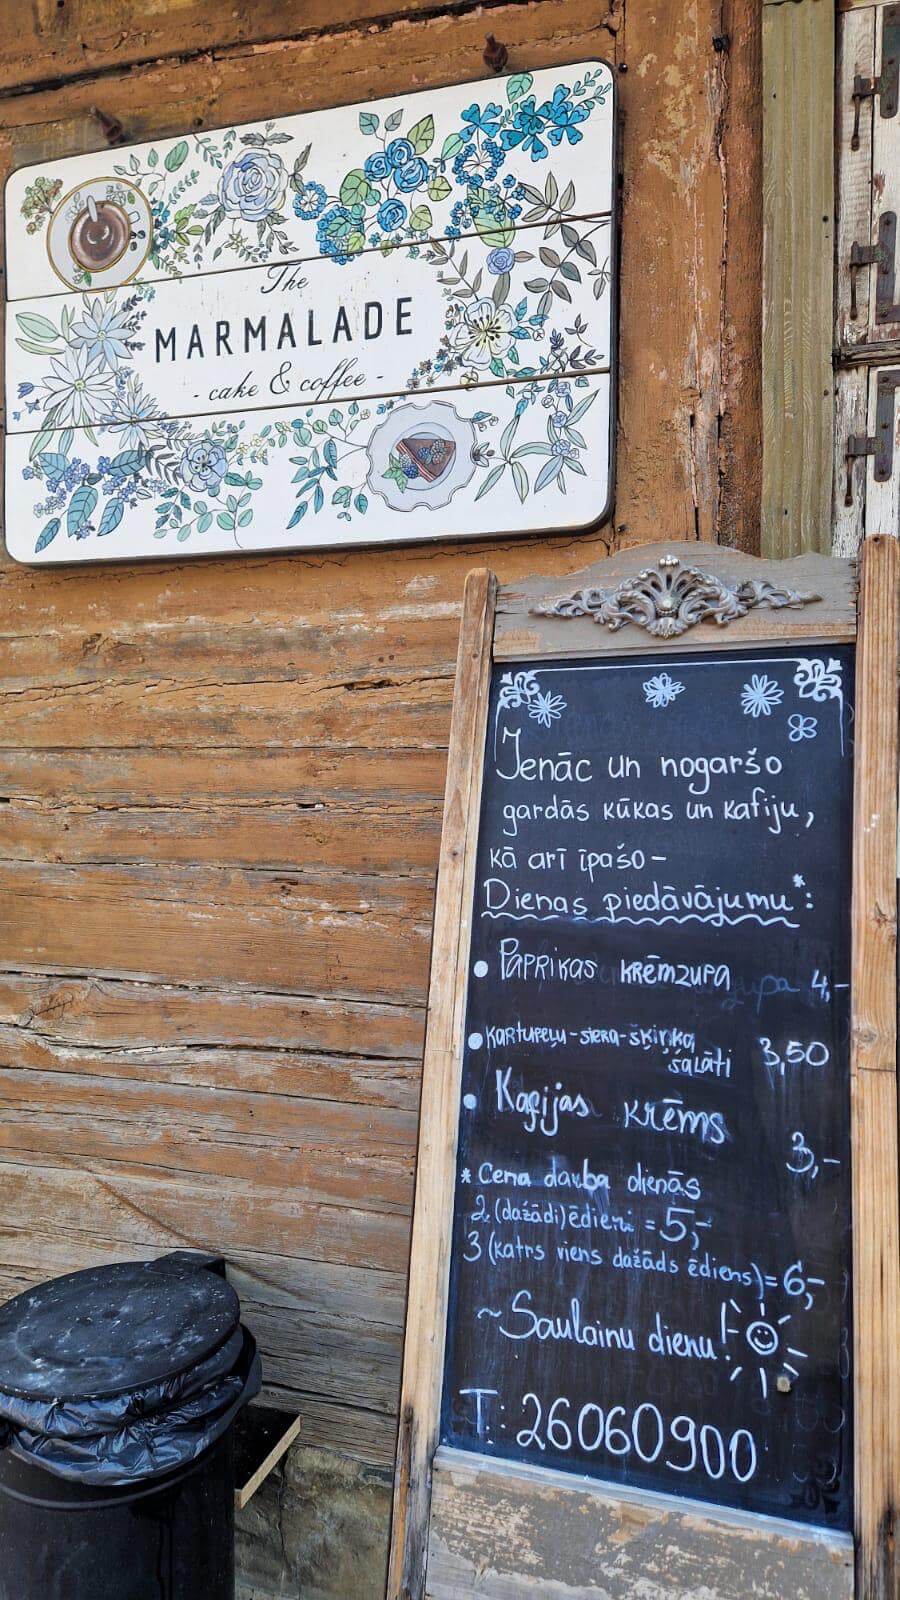 The
MARMALADE
- cake & coffee -
Ienāc un nogaršo
gardās kūkas un kafiju,
kā arī īpašo -
Dienas piedāvājumu*:
• Paprikas krēmzupa 4,-
• Kartupeļu-siera-šķiņķa
salāti 3,50
• Kafijas krēms
3,-
* Cena darba dienās
2 (dažādi) ēdieni = 5,-
3 (katrs viens dažāds ēdiens) = 6,-
~ Saulainu dienu!
T: 26060900